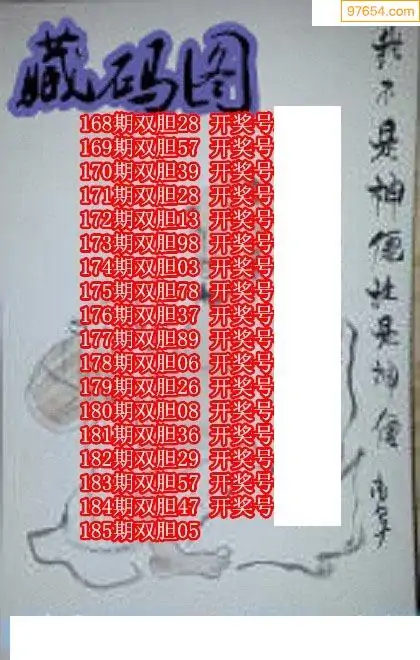 97654.com
藏码图
168期双胆28 开奖号
169期双胆57 开奖号
170期双胆39 开奖号
171期双胆28 开奖号
172期双胆13 开奖号
173期双胆98 开奖号
174期双胆03 开奖号
175期双胆78 开奖号
176期双胆37 开奖号
177期双胆89 开奖号
178期双胆06 开奖号
179期双胆26 开奖号
180期双胆08 开奖号
181期双胆36 开奖号
182期双胆29 开奖号
183期双胆57 开奖号
184期双胆47 开奖号
185期双胆05
我不是神便社是神便